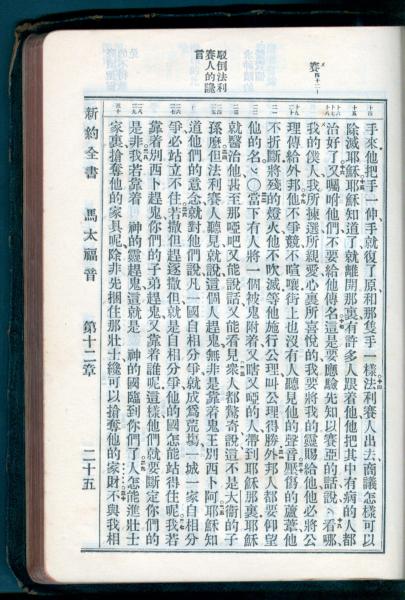 賽四十二 一
駁倒法利
賽人的讒
言
手來他把手一伸手就復了原和那隻手一樣法利賽人出去商議怎樣可以
除滅耶穌耶穌知道了就離開那裏有許多人跟着他他把其中有病的人都
治好了又囑咐他們不要給他傳名這是要應驗先知以賽亞的話說看哪
我的僕人我所揀選所親愛心裏所喜悅的我要將我的靈賜給他他必將公
理傳給外邦他不爭競不喧嚷街上也沒有人聽見他的聲音壓傷的蘆葦他
不折斷將殘的燈火他不吹滅等他施行公理叫公理得勝外邦人都要仰望
他的名〇當下有人將一個被鬼附着又瞎又啞的人帶到耶穌那裏耶穌
就醫治他甚至那啞吧又能說話又能看見衆人都驚奇說這不是大衛的子
孫麽但法利賽人聽見就說這個人趕鬼無非是靠着鬼王別西卜阿耶穌知
道他們的意念就對他們說凡一國自相分爭就成爲荒塲一城一家自相分
爭必站立不住若撒但趕逐撒但就是自相分爭他的國怎能站得住呢我若
靠着別西卜趕鬼你們的子弟趕鬼又靠着誰呢這樣他們就要斷定你們的
是非我若靠着 神的靈趕鬼這就是 神的國臨到你們了人怎能進壯士
家裏搶奪他的家具呢除非先捆住那壯士纔可以搶奪他的家財不與我相
新約全書 馬太福音 第十二章 二十五